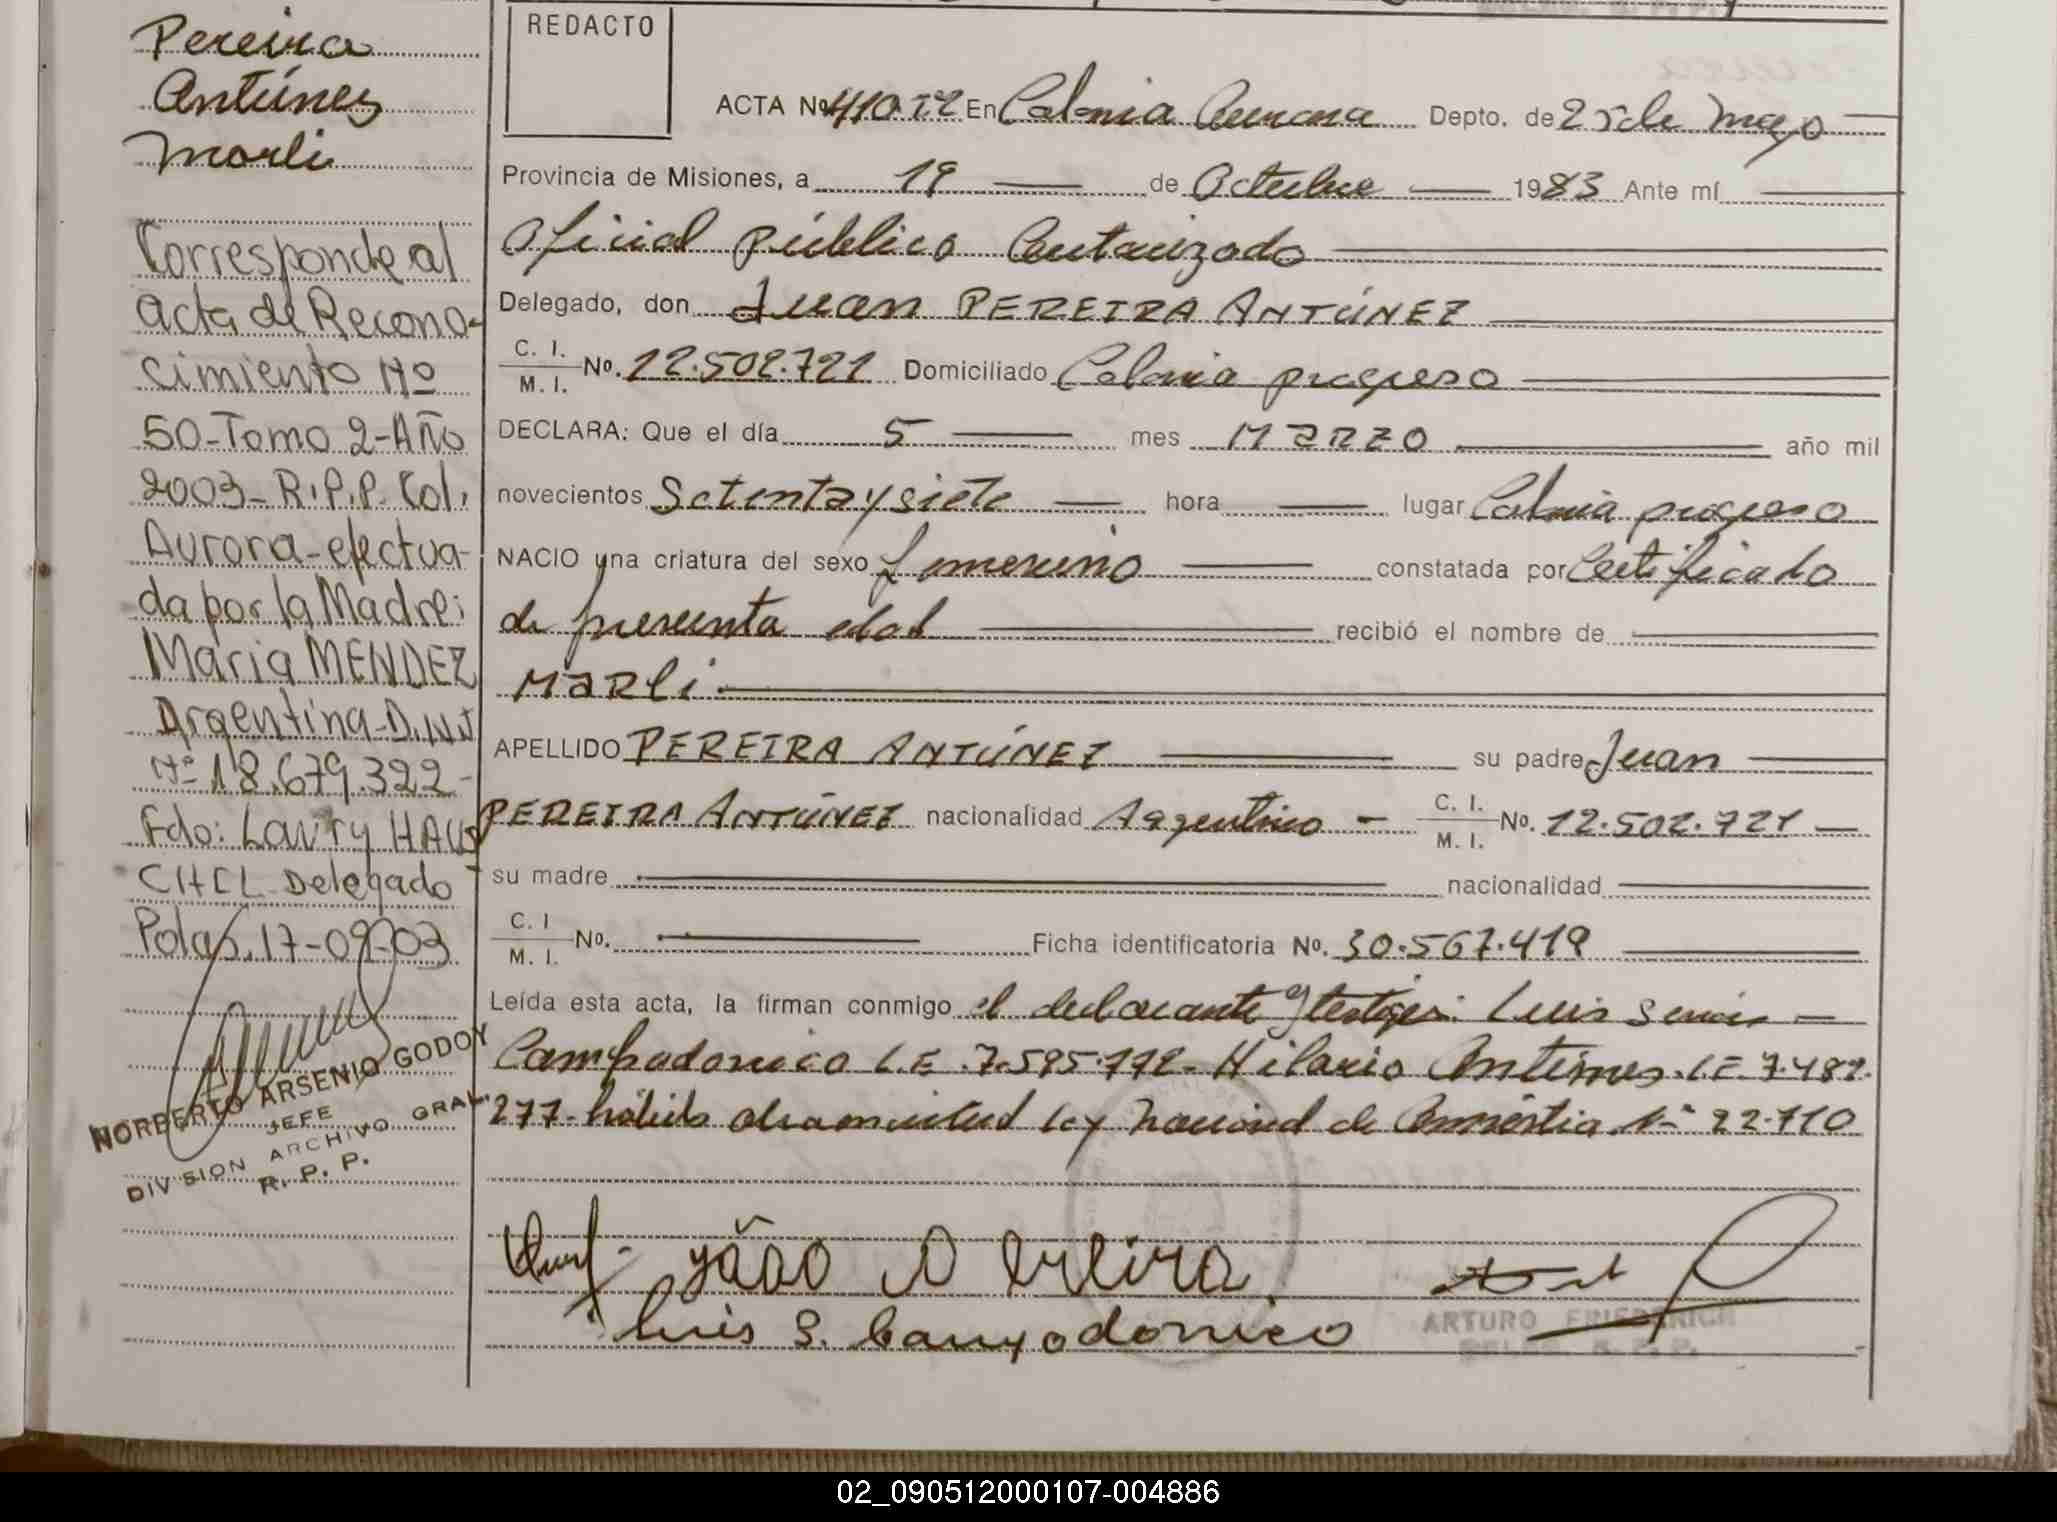 Pereira
Antúnez
Marli
Corresponde al
acta de Recono-
cimiento Nº
50-Tomo 2-Año
2003- R.P.P. Col.
Aurora-efectua-
da por la Madre:
Maria MENDEZ
Argentina-D.N.I
Nº 18.679.322-
Fdo: Lawry
Delegado
Polas, 17-09-03
NORBERTO ARSENIO GODOY
JEFE
DIVISION ARCHIVO GRAL.
R. P. P.
REDACTO
ACTA Nº 410 T2 En Colonia Aurora Depto. de 25 de Mayo
Provincia de Misiones, a 19 de Octubre 1983 Ante mí
Oficial público Autorizado
Delegado, don Juan PEREIRA ANTÚNEZ
C. I.
M. I. No. 12.502.721 Domiciliado Colonia progreso
DECLARA: Que el día 5 mes MARZO año mil
novecientos Setenta y siete hora lugar Colonia progreso
NACIO una criatura del sexo femenino constatada por Certificado
de presunta edad recibió el nombre de
MARLi
APELLIDO PEREIRA ANTÚNEZ su padre Juan
PEREIRA ANTÚNEZ nacionalidad Argentino - C. I.
M. I. No. 12.502.721
su madre nacionalidad
C. I
M. I. No. Ficha identificatoria No. 30.567.419
Leída esta acta, la firman conmigo el declarante y testigos: Luis
Campodonico L.E. 7.595.772- Hilario Antúnes. L.E. 7.489.
277- Ley Nacional de Amnistia Nº 22.710
João A Pereira
Luis S. Campodonico
ARTURO FRIEDERICH
DELEG. R. P. P.
02_090512000107-004886